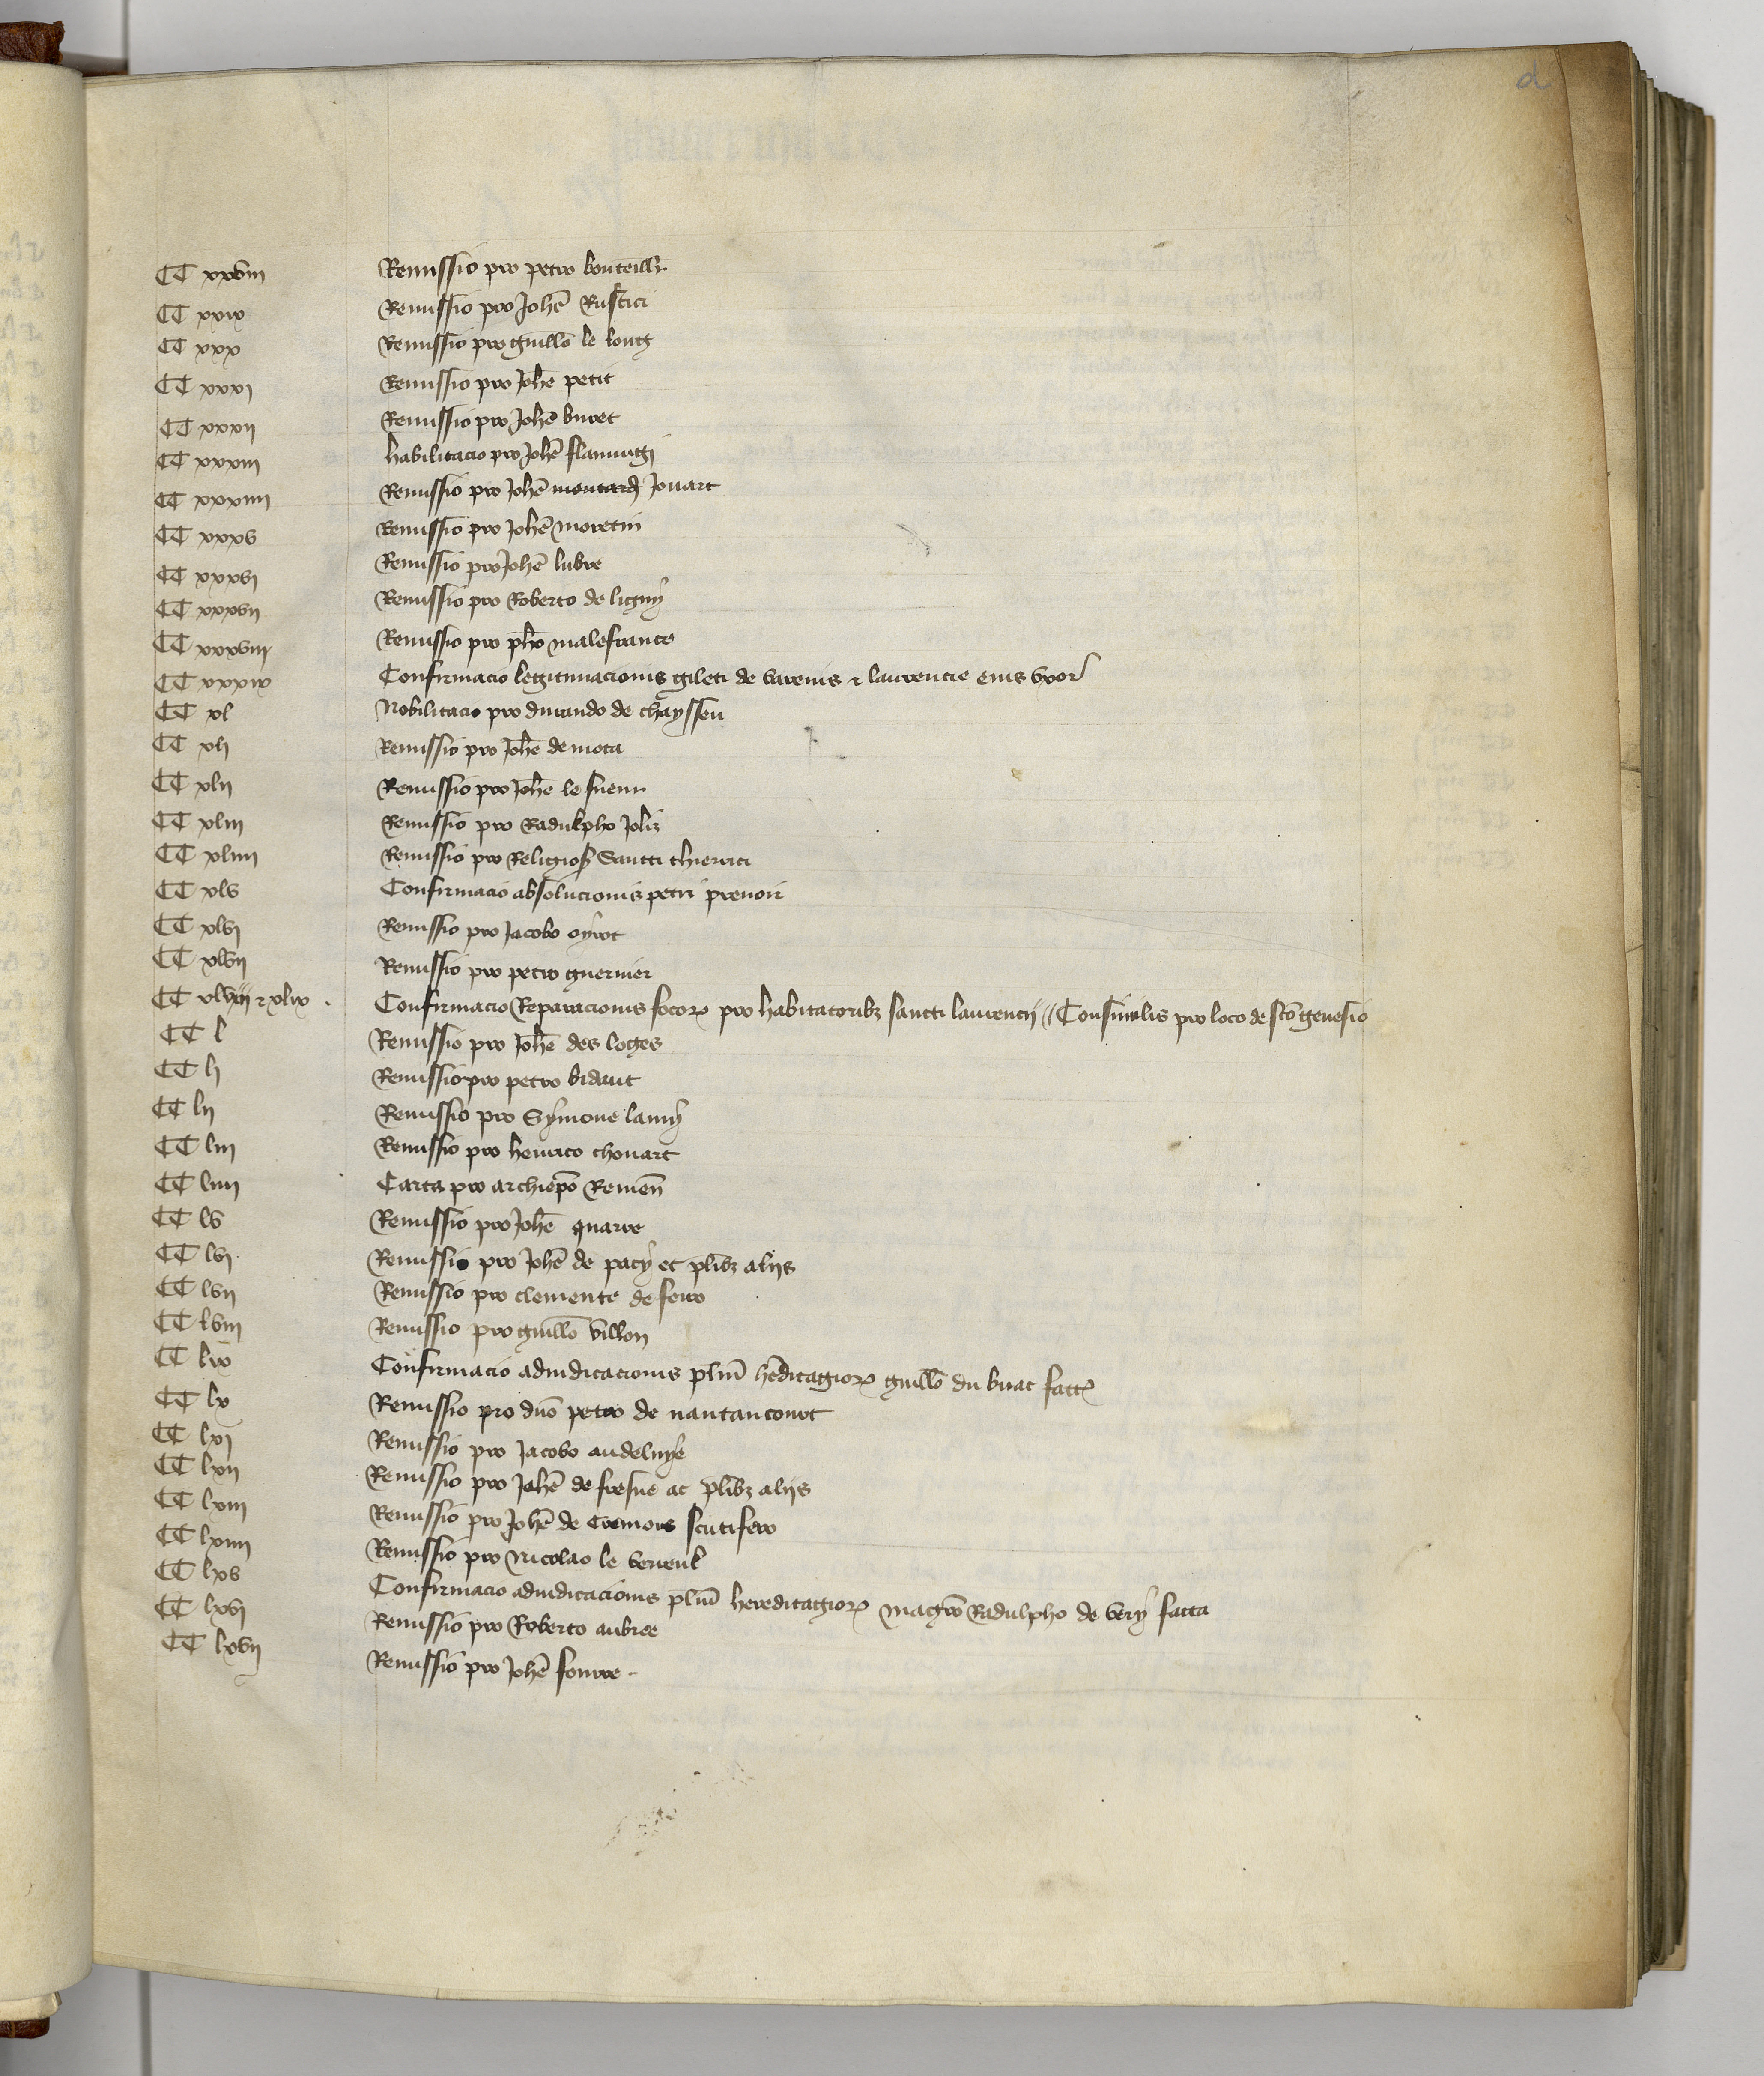 d
CC xxviii Remissio pro petro bouteillr
CC xxix Remissio pro Johē Rustici
CC xxx Remissio pro guillō le long
CC xxxi Remissio pro Johē petit
CC xxxii Remissio pro Johē buret
CC xxxiii habilitacio pro Johē flamingi
CC xxxiiii Remissio pro Johē Jouart
CC xxxv Remissio pro Johē moretin
CC xxxvi Remissio pro Johē lubre
CC xxxvii Remissio pro Roberto de ligny
CC xxxviii Remissio pro pho malefrance
CC xxxix Confirmacio legitimacionis gileti de varenis ⁊ laurencie eius vxor
CC xl Nobilitacio pro durando de chayssen
CC xli Remissio pro Johē de mota
CC xlii Remissio pro Johē le sueur
CC xliii Remissio pro Radulpho Joliz
CC xliiii Remissio pro Religios Sancti thierrici
CC xlv Confirmacio absolucionis petri
CC xlvi Remissio pro Jacobo oyrot
CC xlvii Remissio pro petro guernier
CC xlviii ⁊ xlix . Confirmacio Reparacionis focoꝝ pro habitatoribꝫ sancti laurencij // Consimilis pro loco de scō genesio
CC l Remissio pro Johē des loges
CC li Remissio pro petro bidaut
CC lii Remissio pro Symone lamy
CC liii Remissio pro henrico chouart
CC liiii Carta pro archiepō Remeñ
CC lv Remissio pro Johē quarre
CC lvi Remissio pro Johē de pacy et plibꝫ aliis
CC lvii Remissio pro clemente de ferro
CC lviii Remissio pro guillō villon
CC lix Confirmacio adiudicacionis pluīū hēditagioꝝ guillō du buat facte
CC lx Remissio pro dnō petro de nantancourt
CC lxi Remissio pro Jacobo andeluye
CC lxii Remissio pro Johē de fresne ac plibꝫ aliis
CC lxiii Remissio pro Johē de Cremors scutifero
CC lxiiii Remissio pro Nicolao le
CC lxv Confirmacio adiudicacionis pluīū hereditagioꝝ magrō Radulpho de very facta
CC lxvi Remissio pro Roberto aubree
CC lxvii Remissio pro Johē fourre